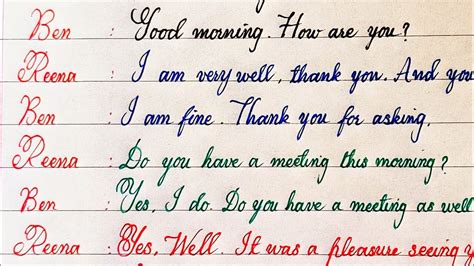 Ben : Good morning. How are you?
Reena : I am very well, thank you. And you
Ben : I am fine. Thank you for asking.
Reena : Do you have a meeting this morning?
Ben : Yes, I do. Do you have a meeting as well
Reena : Yes, Well. It was a pleasure seeing